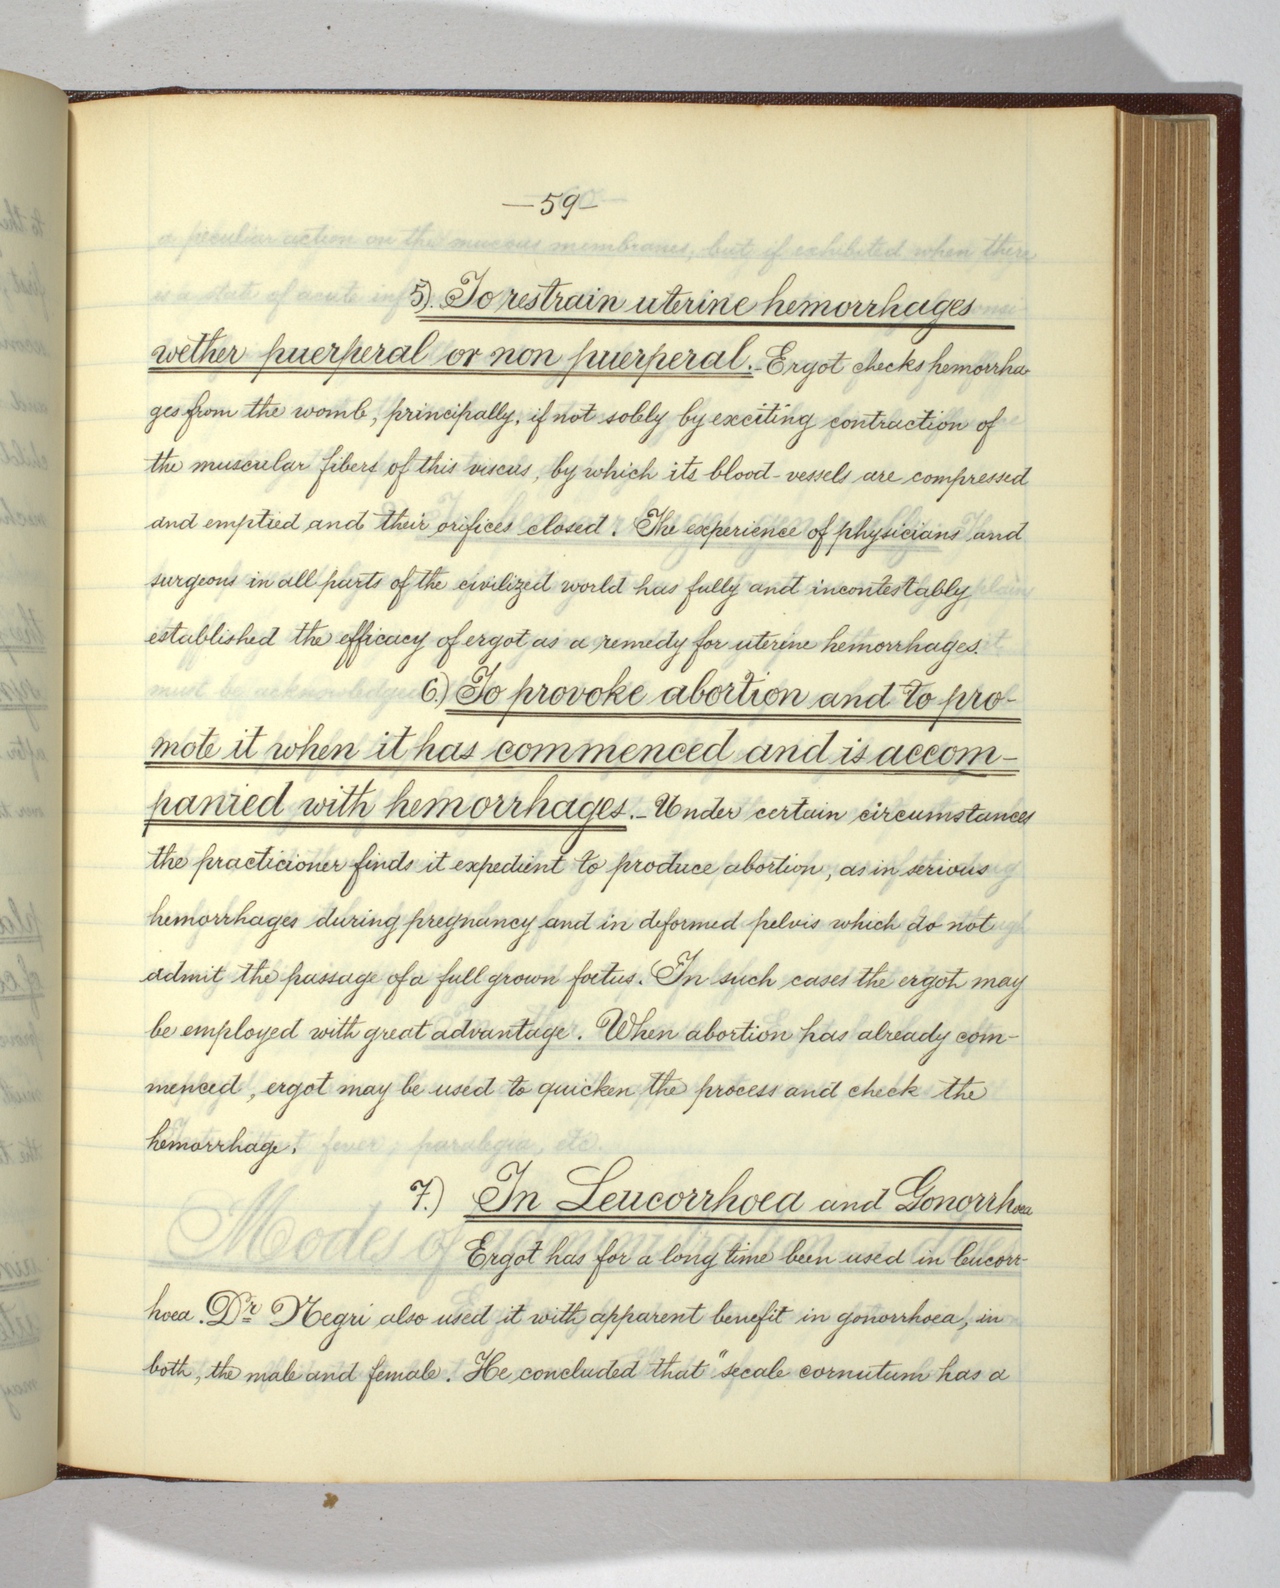 —59—
5). To restrain uterine hemorrhages
wether puerperal or non puerperal.- Ergot checks hemorrha-
ges from the womb, principally, if not solely by exciting contraction of
the muscular fibers of this viscus, by which its blood-vessels are compressed
and emptied and their orifices closed. The experience of physicians and
surgeons in all parts of the civilized world has fully and incontestably
established the efficacy of ergot as a remedy for uterine hemorrhages.
6.) To provoke abortion and to pro-
mote it when it has commenced and is accom-
panied with hemorrhages.- Under certain circumstances
the practicioner finds it expedient to produce abortion, as in serious
hemorrhages during pregnancy and in deformed pelvis which do not
admit the passage of a full grown foetus. In such cases the ergot may
be employed with great advantage. When abortion has already com-
menced, ergot may be used to quicken the process and check the
hemorrhage.
7.) In Leucorrhoea and Gonorrhoea
Ergot has for a long time been used in leucorr-
hoea. Dr Negri also used it with apparent benefit in gonorrhoea, in
both, the male and female. He concluded that "secale cornutum has a